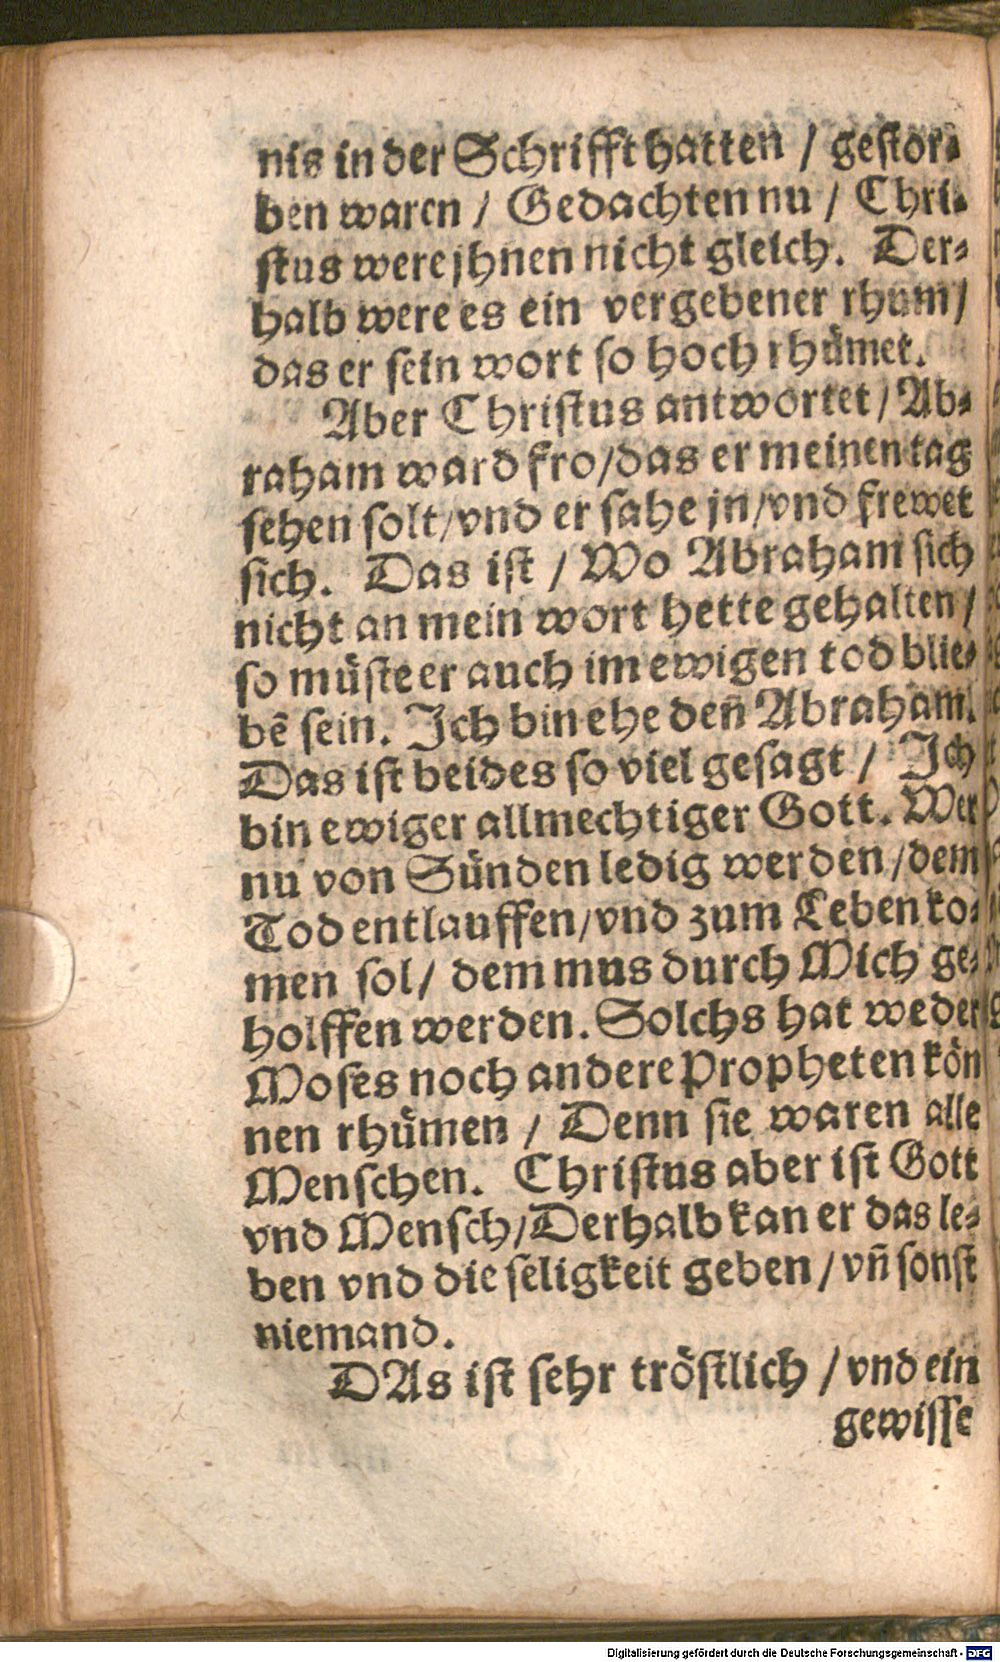 nis in der Schrifft hatten / gestor⸗
ben waren / Gedachten nu / Chri⸗
stus were jhnen nicht gleich. Der⸗
halb were es ein vergebener rhum /
das er sein wort so hoch rhümet.
Aber Christus antwortet / Ab⸗
raham ward fro / das er meinen tag
sehen solt / vnd er sahe jn / vnd frewet
sich. Das ist / Wo Abraham sich
nicht an mein wort hette gehalten /
so müste er auch im ewigen tod blie⸗
bē sein. Ich bin ehe deñ Abraham.
Das ist beides so viel gesagt / Ich
bin ewiger allmechtiger Gott. Wer
nu von Sünden ledig werden / dem
Tod entlauffen / vnd zum Leben ko⸗
men sol / dem mus durch Mich ge⸗
holffen werden. Solchs hat weder
Moses noch andere Propheten kön
nen rhümen / Denn sie waren alle
Menschen. Christus aber ist Gott
vnd Mensch / Derhalb kan er das le⸗
ben vnd die seligkeit geben / vñ sonst
niemand.
DAs ist sehr tröstlich / vnd ein
gewisse
Digitalisierung gefördert durch die Deutsche Forschungsgemeinschaft - DFG